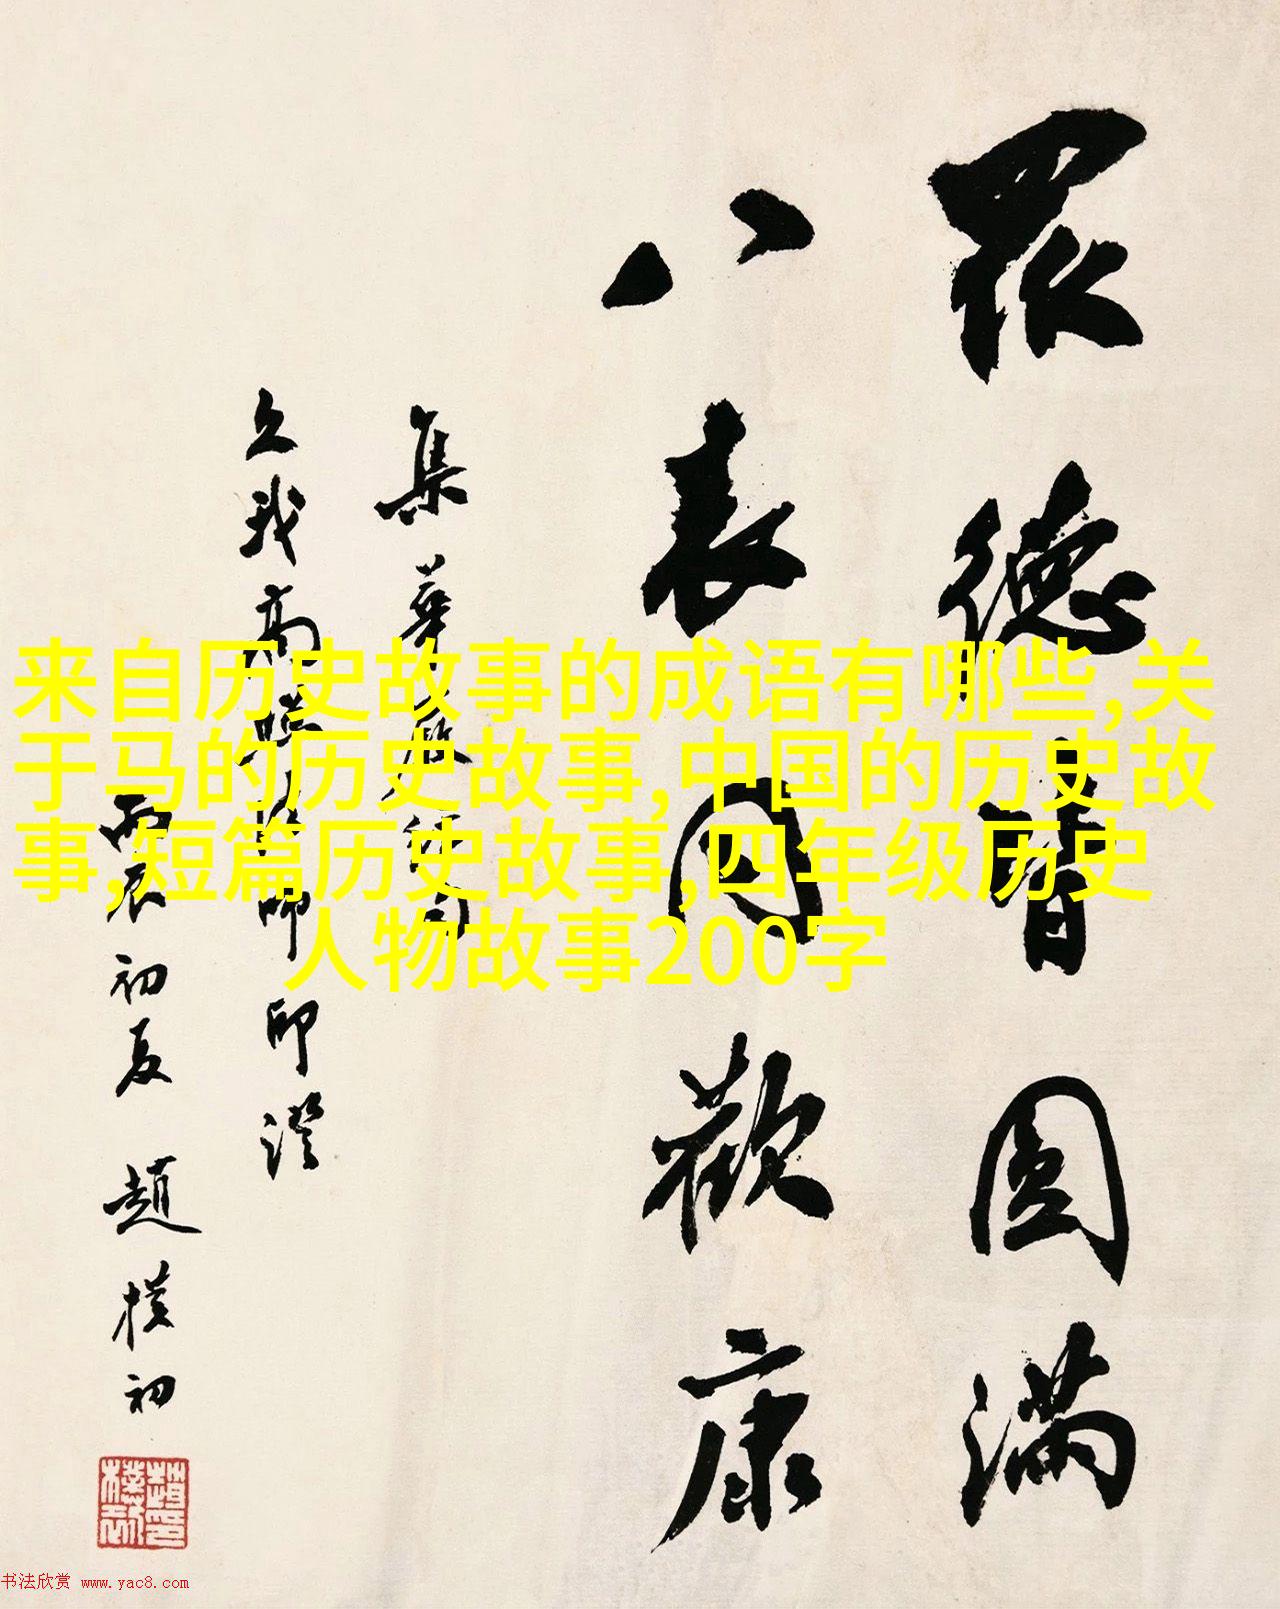 眾德普圓滿
八表同歡康
集華嚴經句
久我高師印
丙辰初夏 趙樸初
来自历史故事的成语有哪些,关
于马的历史故事,中国的历史故
事,短篇历史故事,四年级历史
人物故事200字
书法欣赏 www.yac8.com